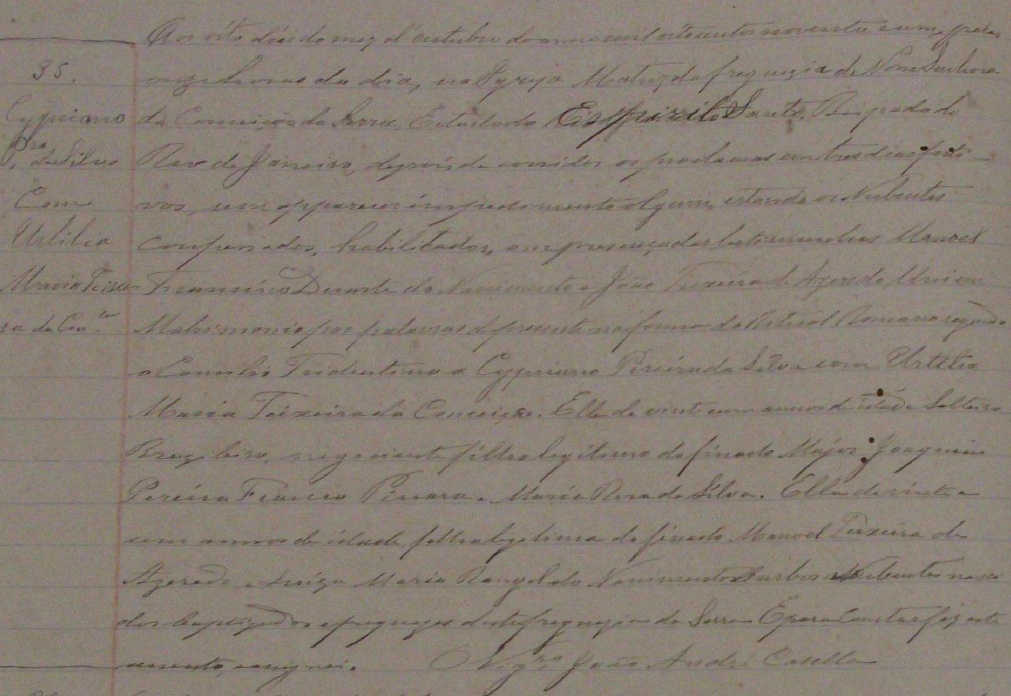 35.
Cypriano
Pra da Silva
Com
Urtilia
Maria Teixei
ra da Con.ção
Aos oito dias do mez d'outubro do anno mil oitocentos noventa e um, pelas
onze horas do dia, na Igreja Matriz da freguezia de Nossa Senhora
da Conceição da Serra, Estado do Espirito Santo, Bispado do
Rio de Janeiro, depois de corridos os proclamas em tres dias festi-
vos, sem apparecer impedimento algum, estando os Nubentes
confessados, habilitados, em presença das testemunhas Manoel
Francisco Duarte do Nascimento e João Teixeira de Azeredo
Matrimonio por palavras de presente na forma do Ritual Romano segundo
o Concilio Tridentino a Cypriano Pereira da Silva com Urtilia
Maria Teixeira da Conceição. Elle de vinte e um annos de idade Solteiro
Brazileiro, negociante filho legitimo do finado Major Joaquim
Pereira Franco Pissarra e Maria Rosa da Silva. Ella de vinte e
um annos de idade filha legitima do finado Manoel Teixeira de
Azeredo e Luiza Maria Rangel do Nascimento Ambos Nubentes nasci
dos baptizados e freguezes desta freguezia da Serra E para Constar fiz este
assento, e assignei. O Vigro João André Casella